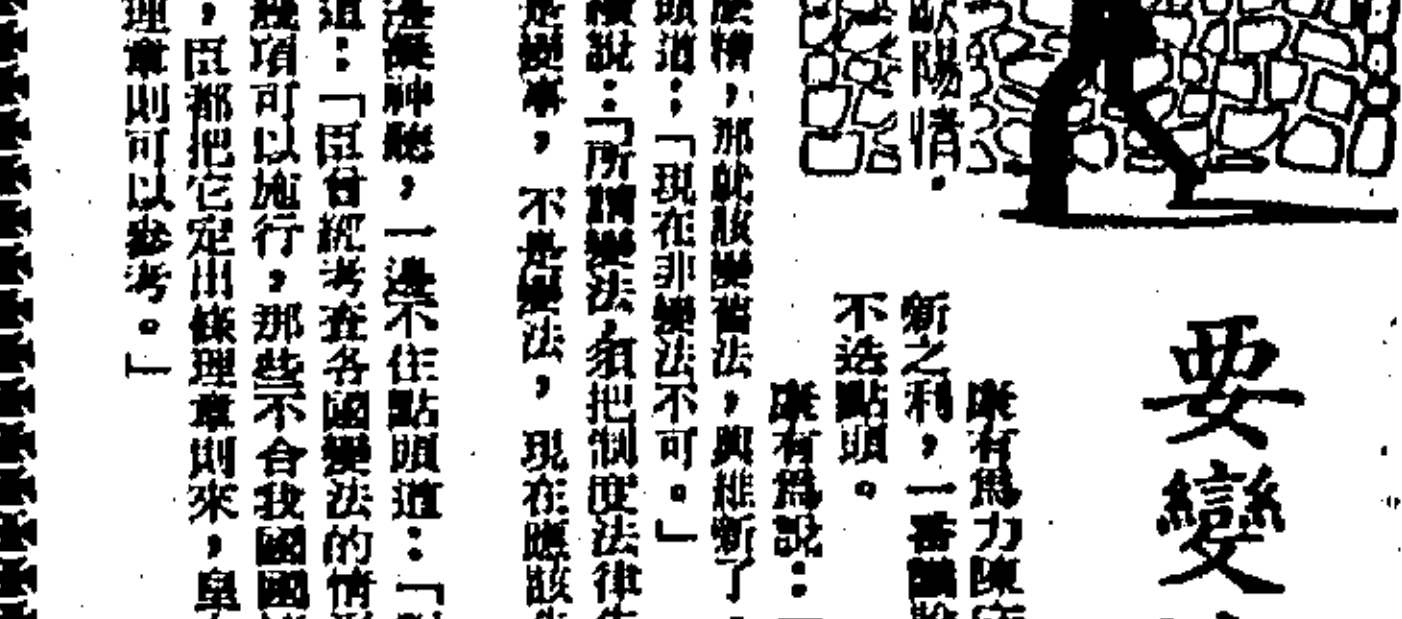 要變
歐陽情，
康有爲力陳
新之利，一番議
不迭點頭。
康有爲說：「
糟，那就該變舊法，與維新了
頭道：「現在非變法不可。」
續說：「所謂變法，須把制度法律
是變事，不是變法，現在應該
邊凝神聽，一邊不住點頭道：「
道：「臣曾經考查各國變法的情形
幾項可以施行，那些不合我國國
，臣都把它定出條理章則來，皇
理章則可以參考。」